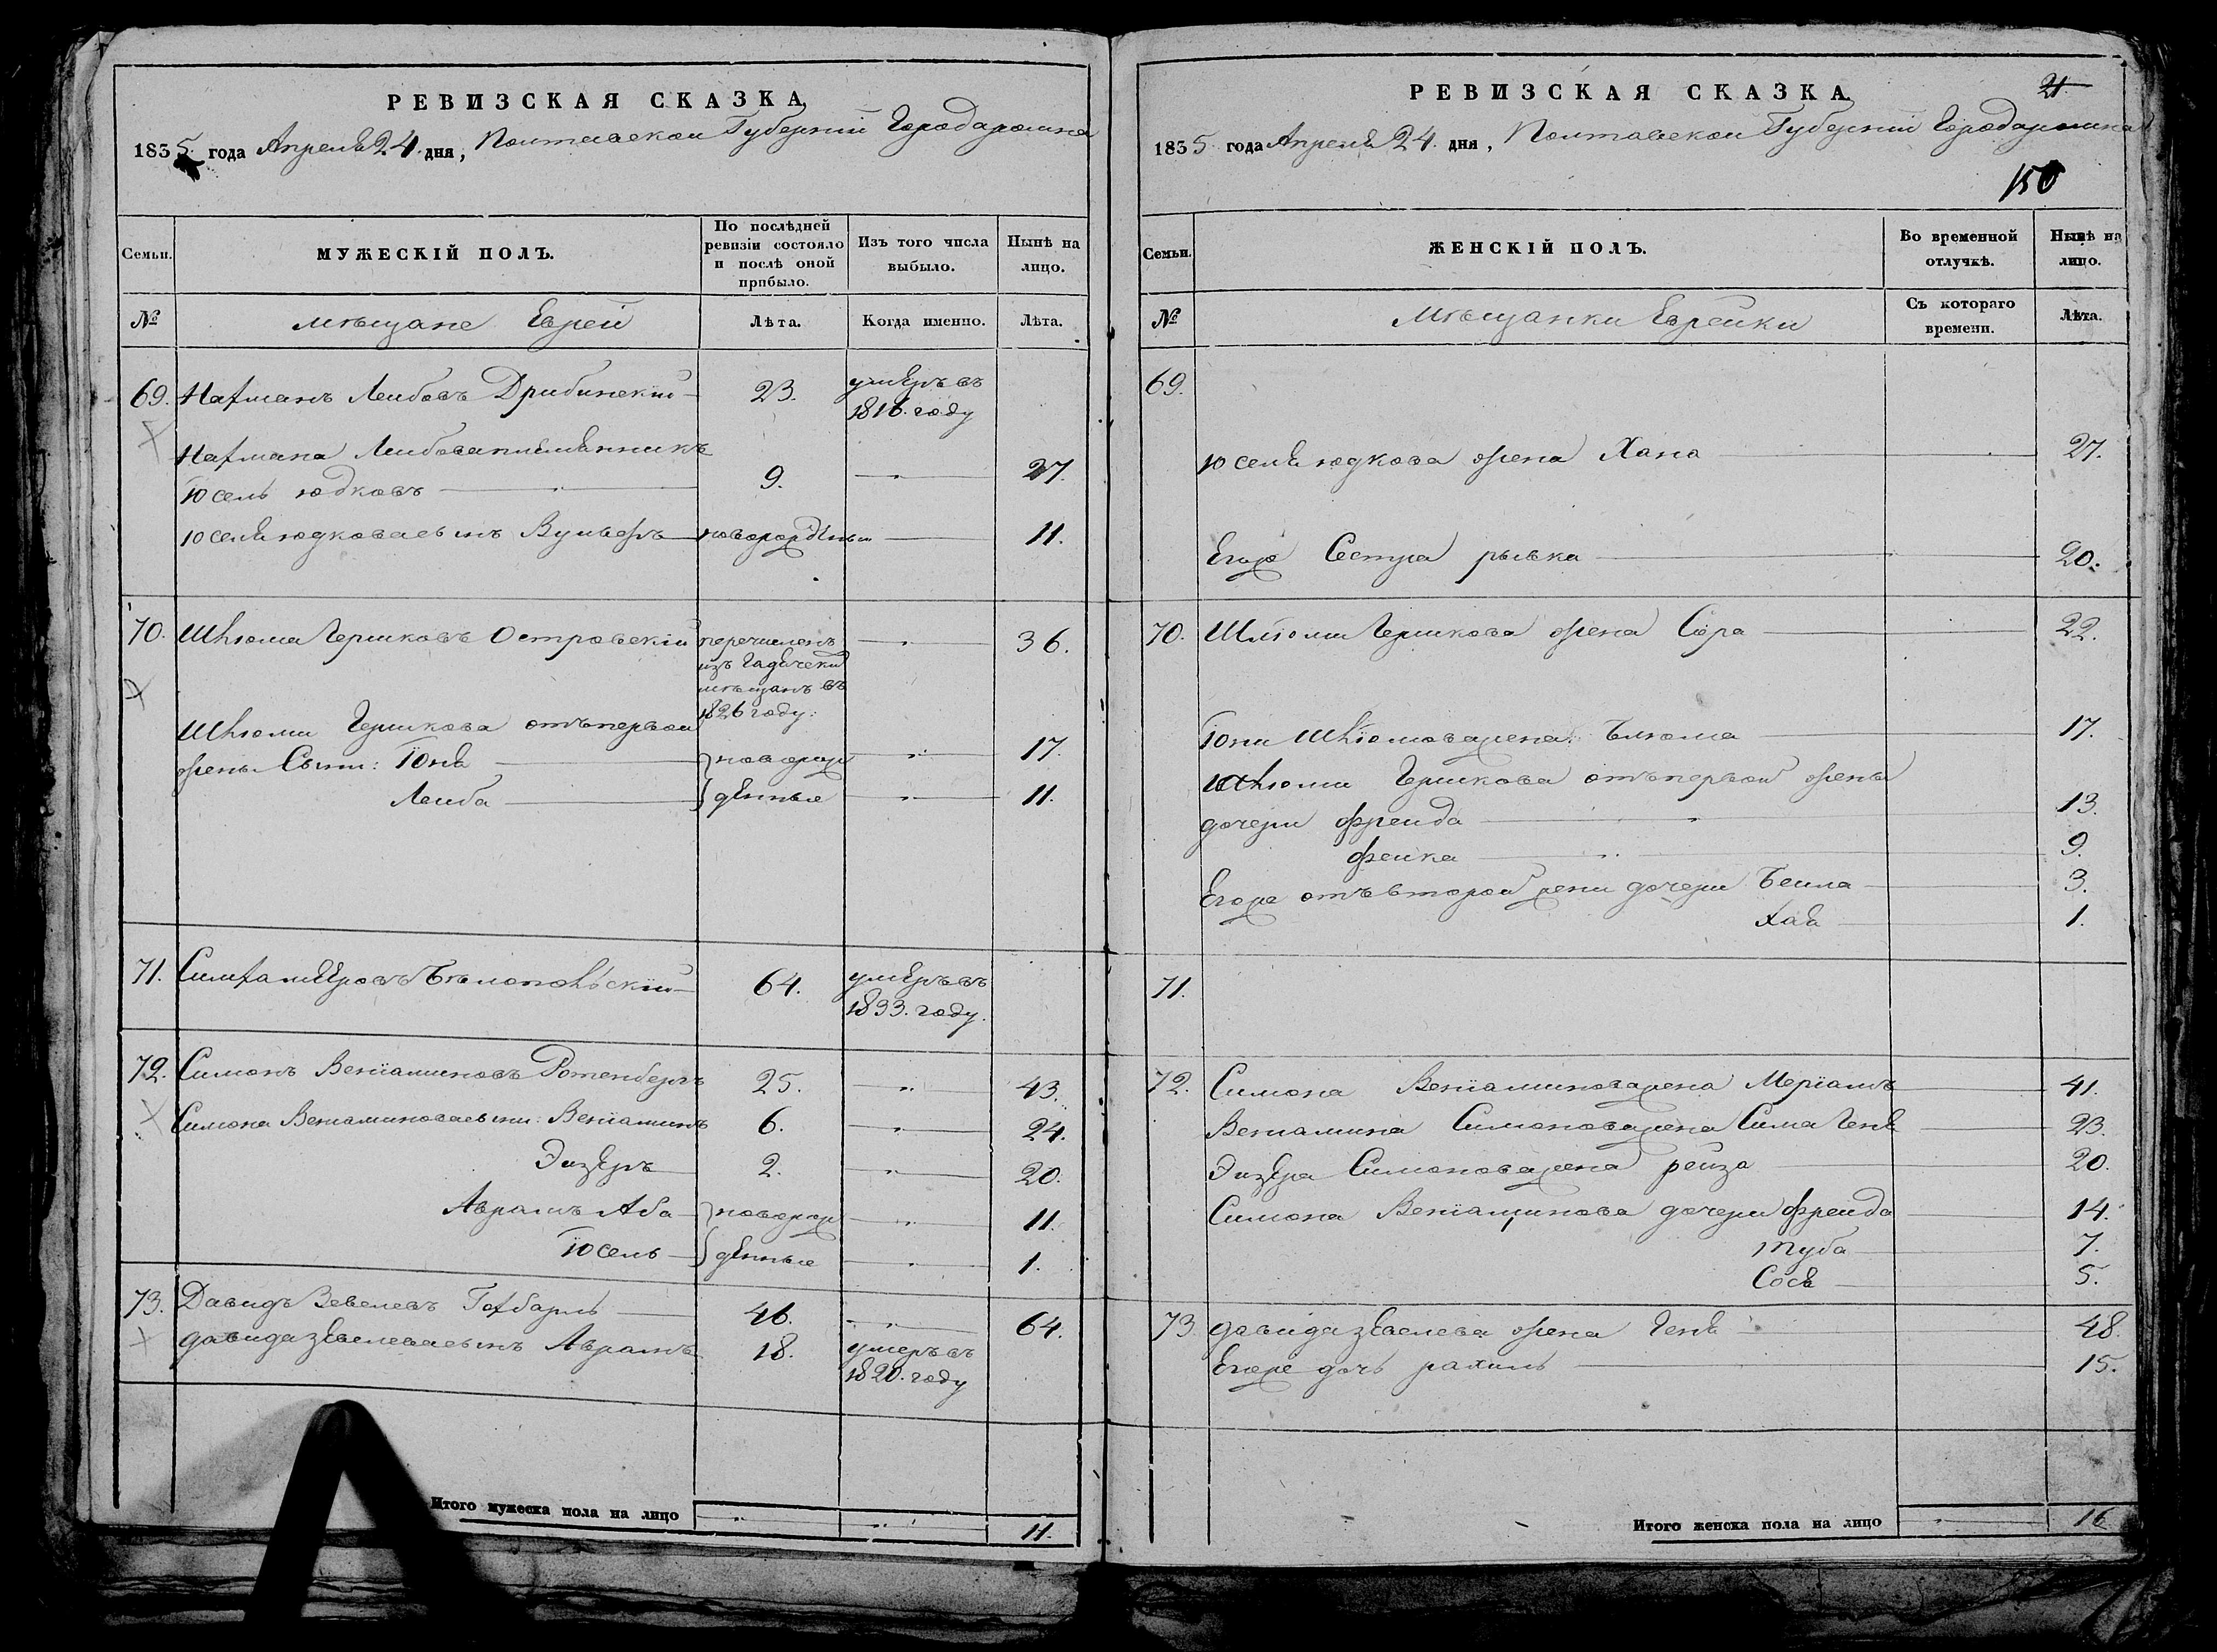 РЕВИЗСКАЯ СКАЗКА
1835 года Апреля 24 дня, Полтавской Губернии Города
Семьи.
МУЖЕСКІЙ ПОЛЪ.
По послѣдней ревизіи состояло и послѣ оной прибыло.
Изъ того числа выбыло.
Нынѣ на лицо.
№
мѣщане Евреи
Лѣта.
Когда именно.
Лѣта.
69. Нахманъ Леибовъ Дрибинскій 23. умеръ въ
1816. году
Нахмана Леибова племенникъ
Іосель юдковъ 9. 27.
Юселя юдкова сынъ Вульфъ новорожденный 11.
70. Шлюома Гершковъ Островскій перечисленъ 36.
изъ Гадяческих
мѣщанъ въ
1826 году:
Шлюоми Гершкова отъ первой
жены Сыни: Іоня новорож 17.
Леиба денные 11.
71. 64. умеръ въ
1833. году.
72. Симонъ Веніаминовъ Ротенбергъ 25. 43.
Симона Вениаминова сыни: Веніаминъ 6. 24.
Эизеръ 2. 20.
Аврамъ Аба новорож 11.
Іосель денные 1.
73. Давидъ Зевелевъ Гохбармъ 46. 64.
давида зевелева сынъ Аврамъ 18. умеръ въ
1820. году
Итого мужеска пола на лицо 11.
РЕВИЗСКАЯ СКАЗКА
21
1835 года Апреля 24 дня, Полтавской Губернии Города
150
Семьи.
ЖЕНСКІЙ ПОЛЪ.
Во временной отлучкѣ.
Нынѣ на лицо.
№
Мѣщанки Еврейки
Съ котораго времени.
Лѣта.
69.
Юселя юдкова жена Хана 27.
Егоже Сестра рывка 20.
70. Шлюоми Гершкова жена Сора 22.
Іони Шлюомова жена: Блюома 17.
Шлюоми Гершкова отъ первой жены
дочери Фреида 13.
Феика 9.
Егоже отъ второй жени дочери Беила 3.
Хая 1.
71.
72. Симона Веніаминова жена Меріамъ 41.
Вениамина Симонова жена Сима Геня 23.
Эизера Симонова жена реиза 20.
Симона Веніаминова дочери Фреида 14.
Туба 7.
Сося 5.
73. давида зевелева жена Геня 48.
Егоже дочь рахиль 15.
Итого женска пола на лицо 16